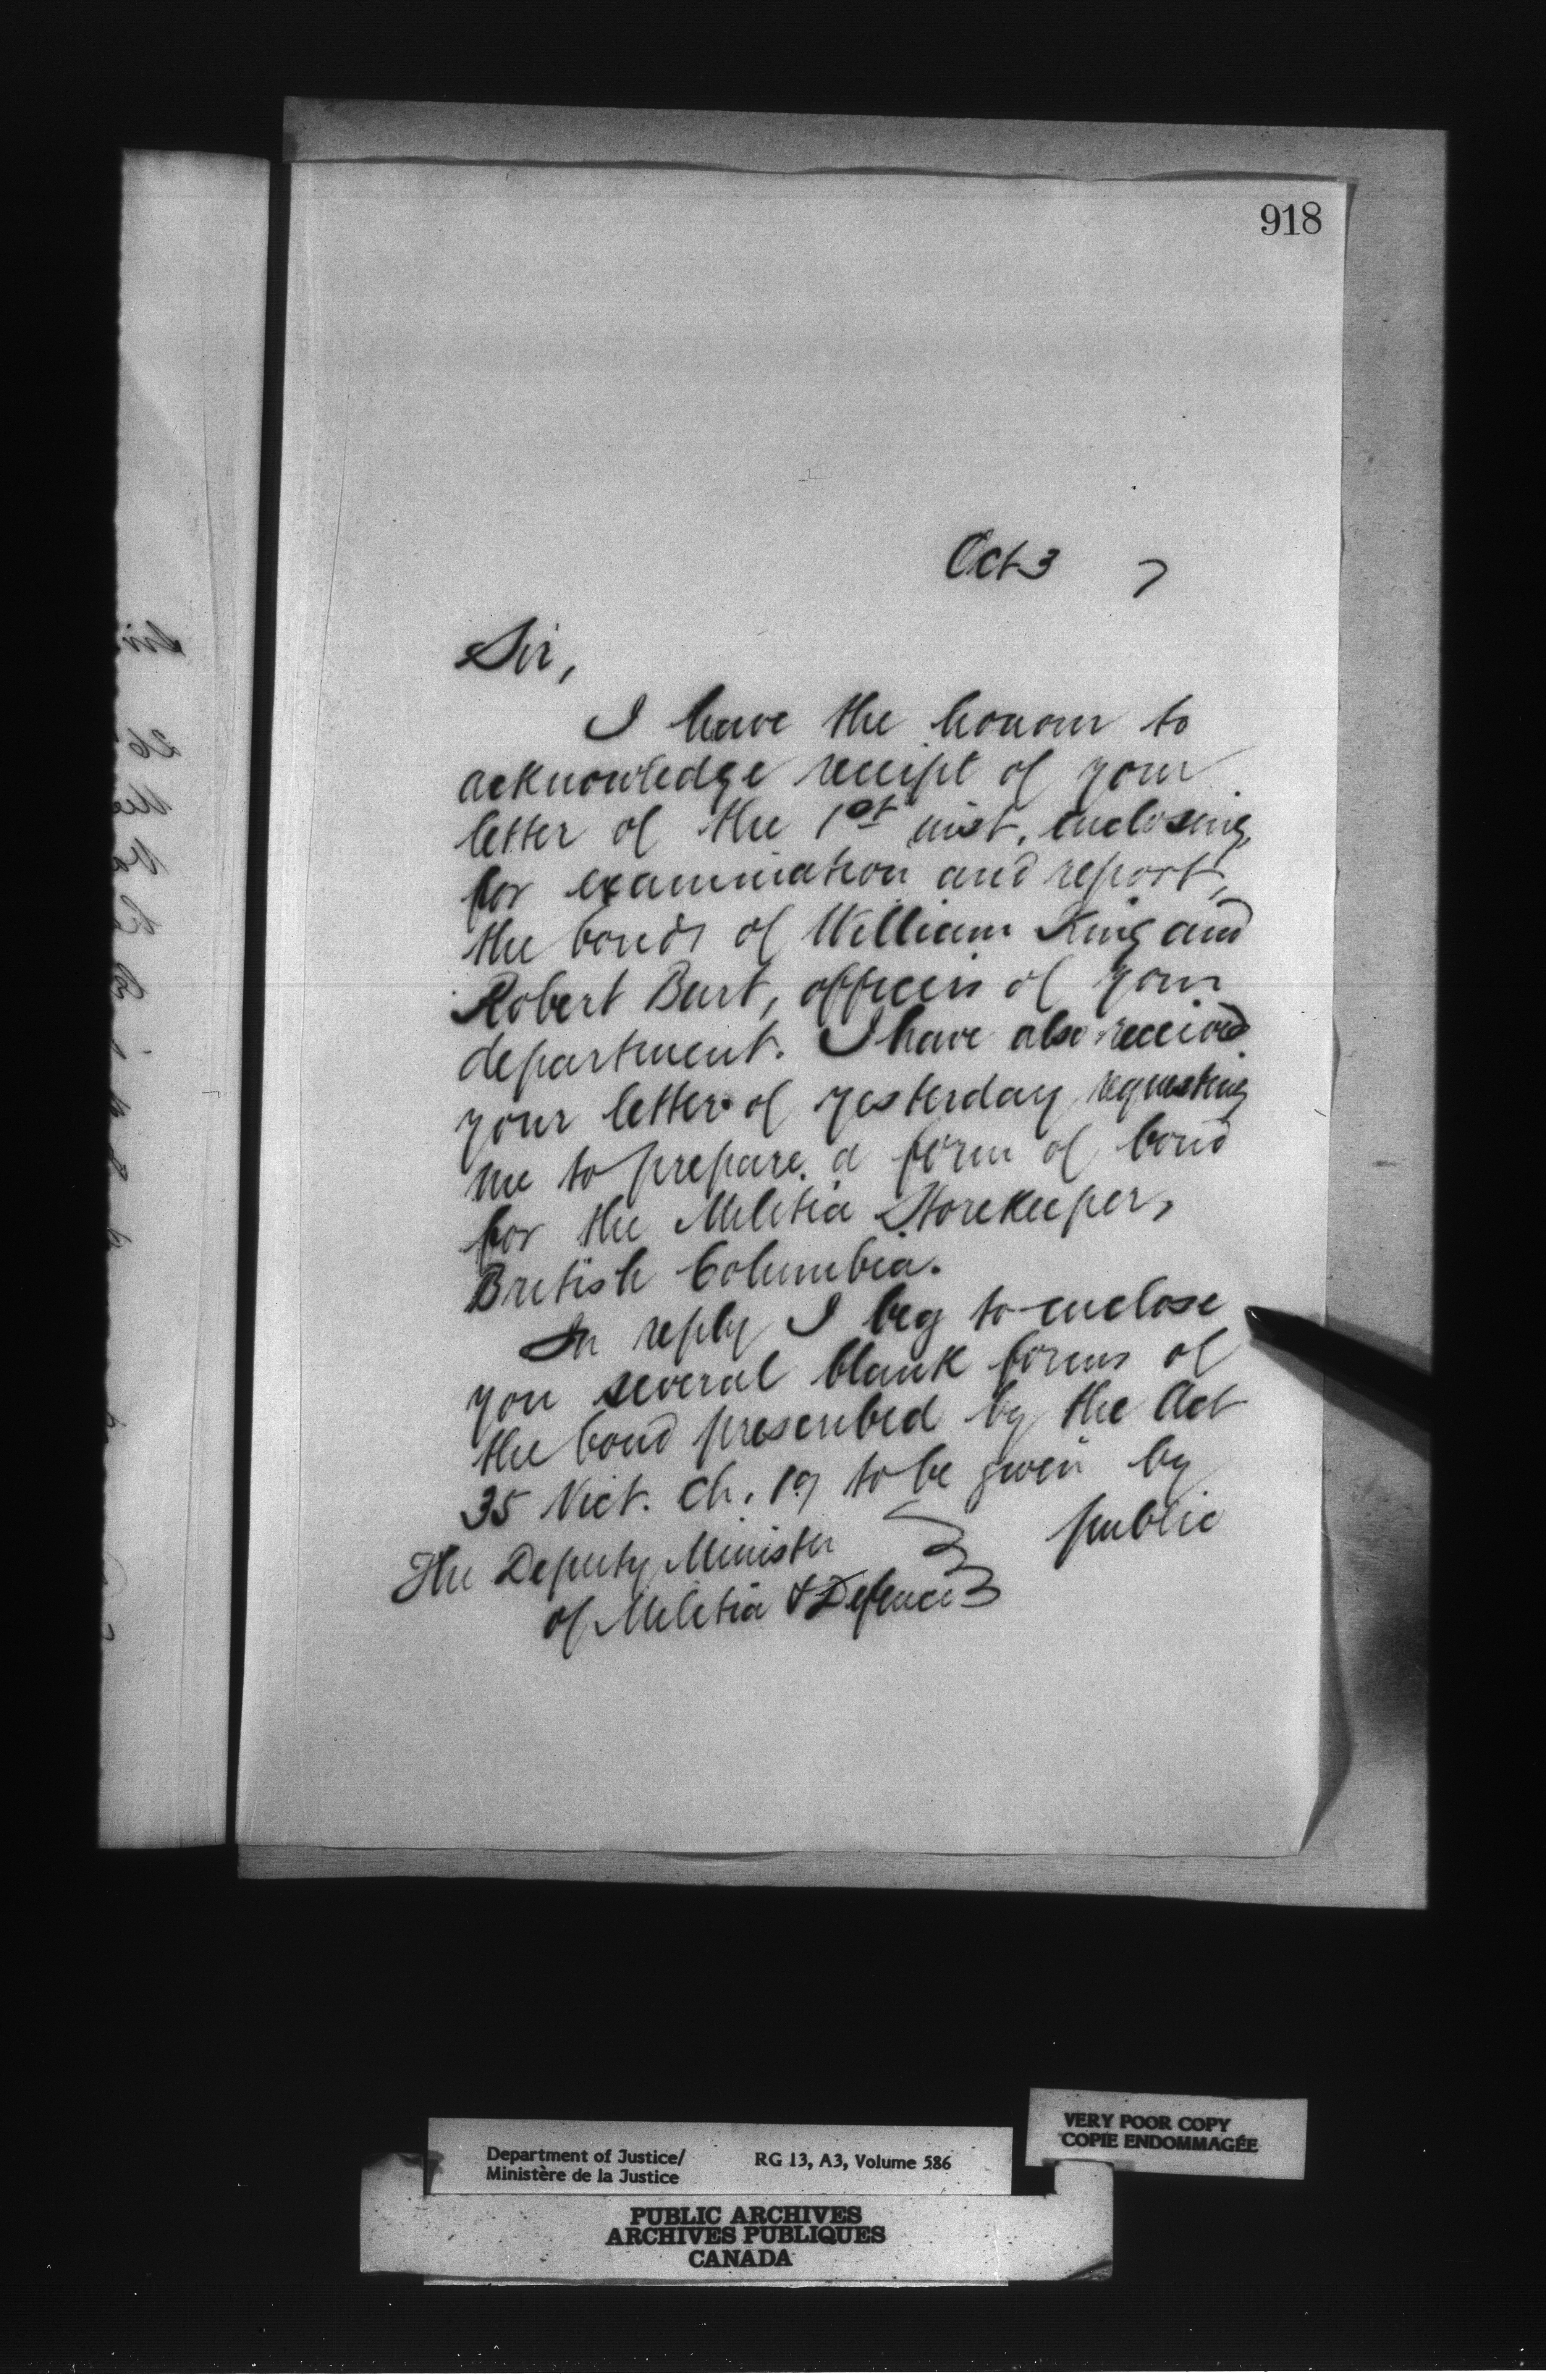 918
Oct 3 7
Sir,
I have the honour to
acknowledge receipt of your
letter of the 1st inst. enclosing,
for examination and report,
the bonds of William King and
Robert Burt, officers of your
department. I have also received
your letter of yesterday requesting
me to prepare a form of bond
for the Militia Storekeeper,
British Columbia.
In reply I beg to enclose
you several blank forms of
the bond prescribed by the Act
35 Vict. Ch. 19 to be given by
public
The Deputy Minister
of Militia & Defence
Department of Justice/
Ministère de la Justice
RG 13, A3, Volume 586
VERY POOR COPY
COPIE ENDOMMAGÉE
PUBLIC ARCHIVES
ARCHIVES PUBLIQUES
CANADA